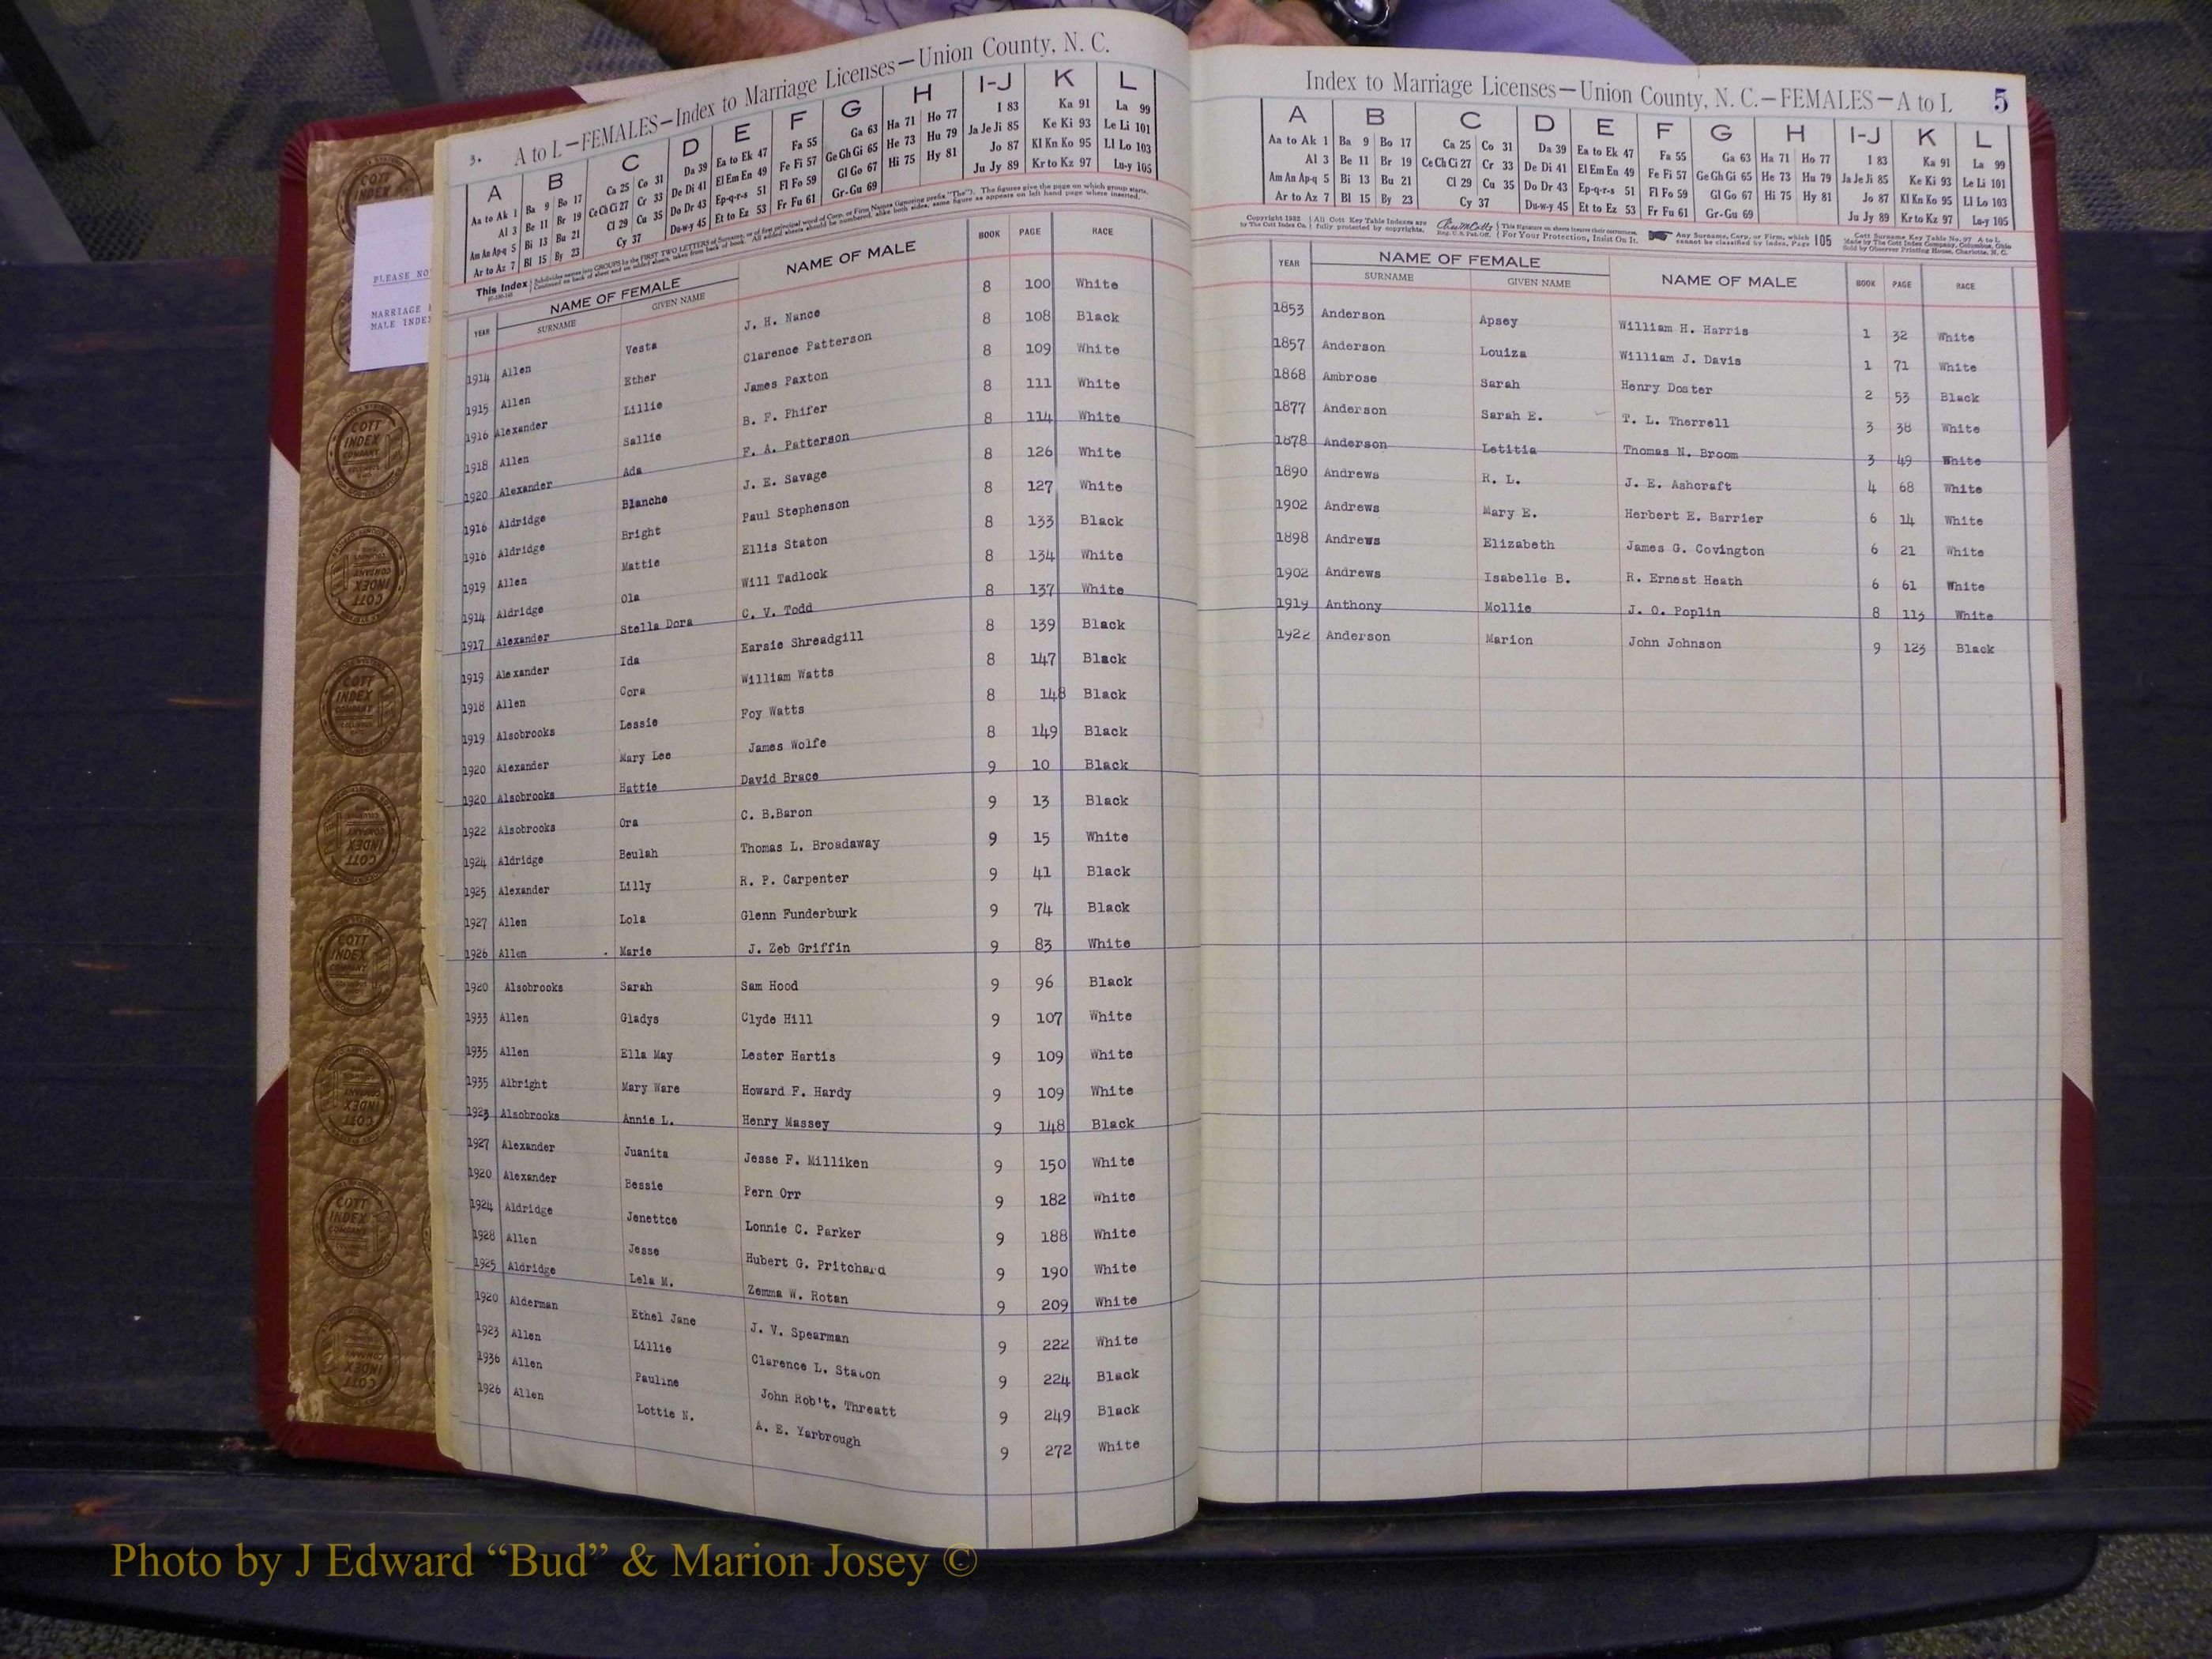 3. A to L—FEMALES—Index to Marriage Licenses—Union County, N. C.
A B C D E F G H I-J K L
Aa to Ak 1 Ba 9 Bo 17 Ca 25 Co 31 Da 39 Ea to Ek 47 Fa 55 Ga 63 Ha 71 Ho 77 I 83 Ka 91 La 99
Al 3 Be 11 Br 19 Ce Ch Ci 27 Cr 33 De Di 41 El Em En 49 Fe Fi 57 Ge Gh Gi 65 He 73 Hu 79 Ja Je Ji 85 Ke Ki 93 Le Li 101
Am An Ap-q 5 Bi 13 Bu 21 Cl 29 Cu 35 Do Dr 43 Ep-q-r-s 51 Fl Fo 59 Gl Go 67 Hi 75 Hy 81 Jo 87 Kl Kn Ko 95 Ll Lo 103
Ar to Az 7 Bl 15 By 23 Cy 37 Du-w-y 45 Et to Ez 53 Fr Fu 61 Gr-Gu 69 Ju Jy 89 Kr to Kz 97 Lu-y 105
This Index
YEAR NAME OF FEMALE SURNAME GIVEN NAME NAME OF MALE BOOK PAGE RACE
1914 Allen Vesta J. H. Nance 8 100 White
1915 Allen Ether Clarence Patterson 8 108 Black
1916 Alexander Lillie James Paxton 8 109 White
1918 Allen Sallie B. F. Phifer 8 111 White
1920 Alexander Ada F. A. Patterson 8 114 White
1916 Aldridge Blanche J. E. Savage 8 126 White
1916 Aldridge Bright Paul Stephenson 8 127 White
1919 Allen Mattie Ellis Staton 8 133 Black
1914 Aldridge Ola Will Tadlock 8 134 White
1917 Alexander Stella Dora C. V. Todd 8 137 White
1919 Alexander Ida Earsie Shreadgill 8 139 Black
1918 Allen Cora William Watts 8 147 Black
1919 Alsobrooks Lessie Foy Watts 8 148 Black
1920 Alexander Mary Lee James Wolfe 8 149 Black
1920 Alsobrooks Hattie David Brace 9 10 Black
1922 Alsobrooks Ora C. B.Baron 9 13 Black
1924 Aldridge Beulah Thomas L. Broadaway 9 15 White
1925 Alexander Lilly R. P. Carpenter 9 41 Black
1927 Allen Lola Glenn Funderburk 9 74 Black
1926 Allen . Marie J. Zeb Griffin 9 83 White
1920 Alsobrooks Sarah Sam Hood 9 96 Black
1933 Allen Gladys Clyde Hill 9 107 White
1935 Allen Ella May Lester Hartis 9 109 White
1935 Albright Mary Ware Howard F. Hardy 9 109 White
1923 Alsobrooks Annie L. Henry Massey 9 148 Black
1927 Alexander Juanita Jesse F. Milliken 9 150 White
1920 Alexander Bessie Pern Orr 9 182 White
1924 Aldridge Jenettce Lonnie C. Parker 9 188 White
1928 Allen Jesse Hubert G. Pritchard 9 190 White
1925 Aldridge Lela M. Zemma W. Rotan 9 209 White
1920 Alderman Ethel Jane J. V. Spearman 9 222 White
1923 Allen Lillie Clarence L. Staton 9 224 Black
1936 Allen Pauline John Rob't. Threatt 9 249 Black
1926 Allen Lottie N. A. E. Yarbrough 9 272 White
Index to Marriage Licenses—Union County, N. C.—FEMALES—A to L 5
A B C D E F G H I-J K L
Aa to Ak 1 Ba 9 Bo 17 Ca 25 Co 31 Da 39 Ea to Ek 47 Fa 55 Ga 63 Ha 71 Ho 77 I 83 Ka 91 La 99
Al 3 Be 11 Br 19 Ce Ch Ci 27 Cr 33 De Di 41 El Em En 49 Fe Fi 57 Ge Gh Gi 65 He 73 Hu 79 Ja Je Ji 85 Ke Ki 93 Le Li 101
Am An Ap-q 5 Bi 13 Bu 21 Cl 29 Cu 35 Do Dr 43 Ep-q-r-s 51 Fl Fo 59 Gl Go 67 Hi 75 Hy 81 Jo 87 Kl Kn Ko 95 Ll Lo 103
Ar to Az 7 Bl 15 By 23 Cy 37 Du-w-y 45 Et to Ez 53 Fr Fu 61 Gr-Gu 69 Ju Jy 89 Kr to Kz 97 Lu-y 105
Copyright 1932 All Cott Key Table Indexes are This Signature on sheets insures their correctness. Any Surname, Corp. or Firm, which Cott Surname Key Table No. 97 A to L
by The Cott Index Co. fully protected by copyrights. Reg. U.S. Pat. Off. For Your Protection, Insist On It. cannot be classified by Index, Page 105 Made by The Cott Index Company, Columbus, Ohio
Sold by Observer Printing House, Charlotte, N. C.
YEAR NAME OF FEMALE SURNAME GIVEN NAME NAME OF MALE BOOK PAGE RACE
1853 Anderson Apsey William H. Harris 1 32 White
1857 Anderson Louiza William J. Davis 1 71 White
1868 Ambrose Sarah Henry Doster 2 53 Black
1877 Anderson Sarah E. T. L. Therrell 3 38 White
1878 Anderson Letitia Thomas N. Broom 3 49 White
1890 Andrews R. L. J. E. Ashcraft 4 68 White
1902 Andrews Mary E. Herbert E. Barrier 6 14 White
1898 Andrews Elizabeth James G. Covington 6 21 White
1902 Andrews Isabelle B. R. Ernest Heath 6 61 White
1919 Anthony Mollie J. O. Poplin 8 113 White
1922 Anderson Marion John Johnson 9 123 Black
PLEASE NO
MARRIAGE
MALE INDE
COTT INDEX COMPANY
Photo by J Edward “Bud” & Marion Josey ©